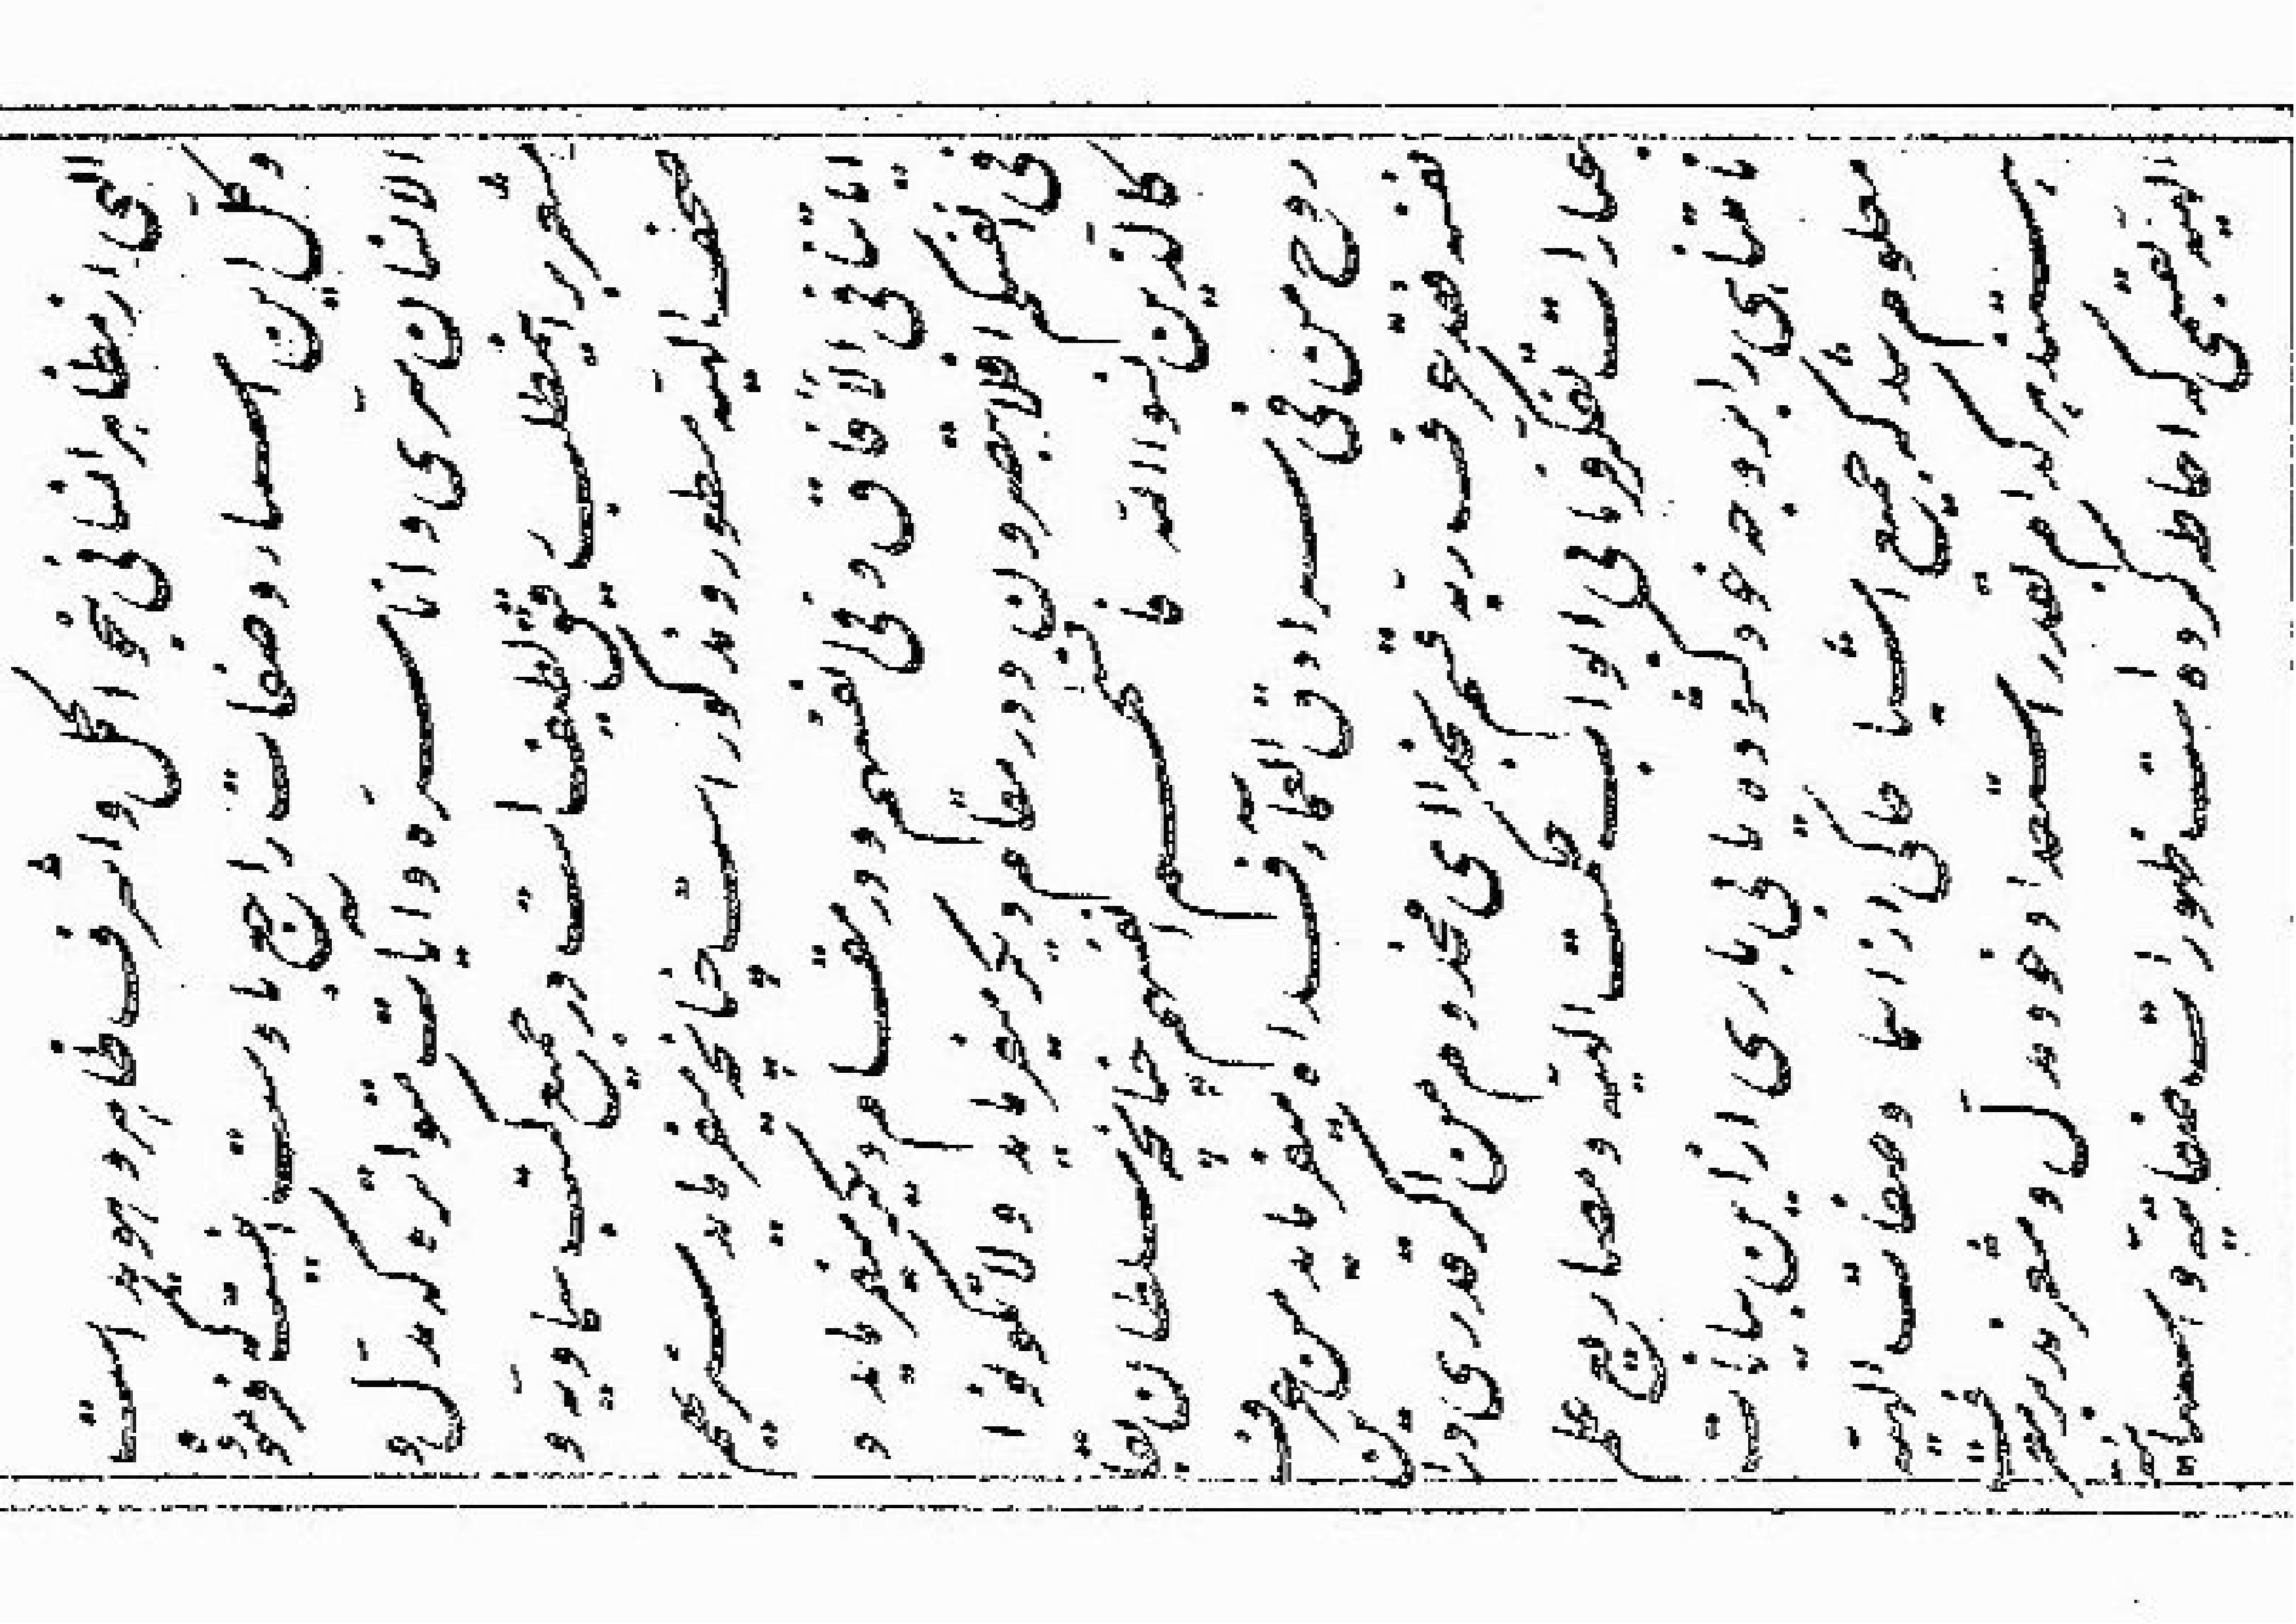 الهی از مظاهر انسانی بنحو اکمل و اشرف ظاهر و هویدا است
و کل این اسما و صفات راجع باوست اینست که فرموده
الانسان سری و انا سره و ایات متواتره که مدل و
مشعر بر این مطلب رقیق لطیف است در جمیع کتب سماویه و
صحف الهیه مسطور و مذکور است چنانچه میفرماید سنریهم
ایاتنا فی الافاق و فی انفسهم و در مقام دیگر میفرماید و
فی انفسکم افلا تبصرون و در مقام دیگر میفرماید و لا تکونوا
کالذین نسوا الله فانساهم انفسهم چنانچه سلطان بقا
روح من فی سرادق العماء فداه میفرماید من عرف
نفسه فقد عرف ربه قسم بخدا ای مخدوم من اگر قدری در این
عبارات تفکر فرمایی ابواب حکمت الهیه و مصاریع علم
نامتناهی را بر وجه خود گشوده یابی باری از این بیانات
معلوم شد که جمیع اشیا حاکی از اسما و صفات الهیه
هستند هر کدام بقدر استعداد خود مدل و مشعرند بر معرفت
الهیه بقسمی که احاطه کرده است ظهورات صفاتیه و اسمائیه